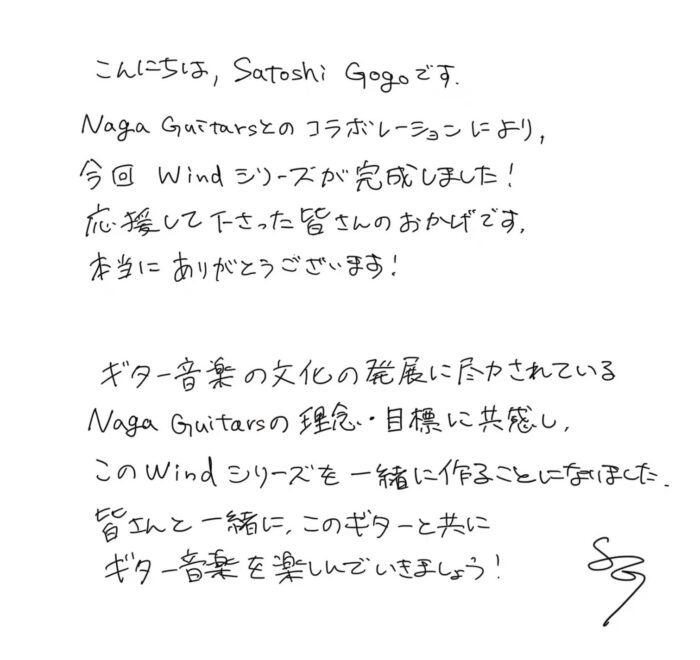 こんにちは, Satoshi Gogoです.
Naga Guitarsとの コラボレーションにより,
今回 Wind シリーズが 完成しました!
応援して下さった皆さんのおかげです.
本当に ありがとうございます!
ギター音楽の文化の発展に尽力されている
Naga Guitarsの 理念・目標に共感し,
このWind シリーズを 一緒に作ることになりました.
皆さんと 一緒に, このギターと共に
ギター音楽を楽しんでいきましょう!
SG